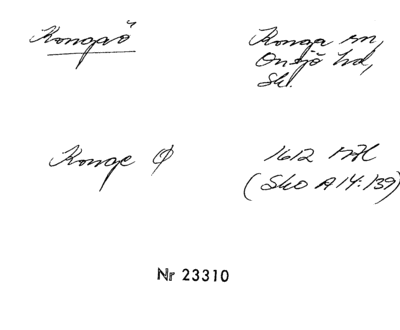 Kongaö
Konga sn,
Onsjö hd,
Sk.
Konge Ø
1612 Mfl
(Sko A14:139)
Nr 23310